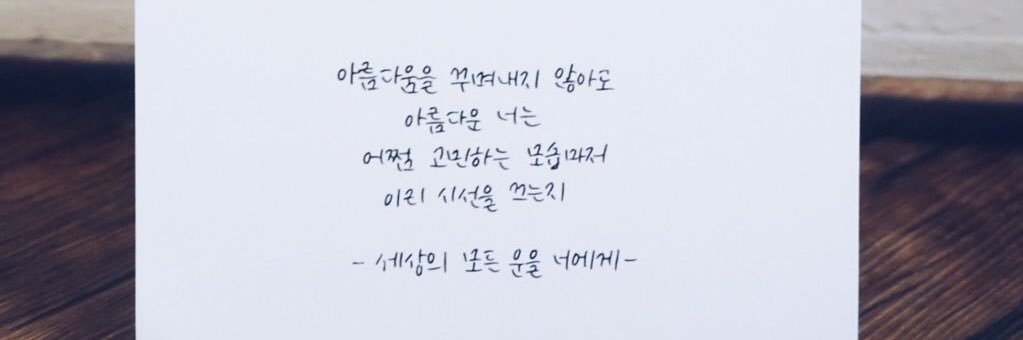 아름다움을 꾸며내지 않아도
아름다운 너는
어쩜 고민하는 모습마저
이리 시선을 끄는지
- 세상의 모든 운을 너에게 -